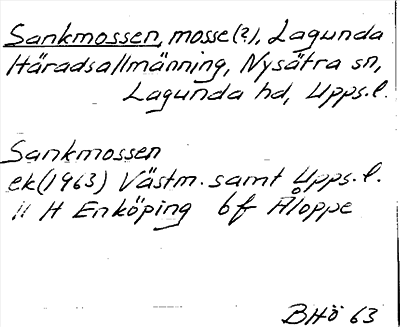 Sankmossen, mosse(?), Lagunda
Häradsallmänning, Nysätra sn,
Lagunda hd, Upps.l.
Sankmossen
ek(1963) Västm. samt Upps.l.
11 H Enköping bf Åloppe
BHö 63